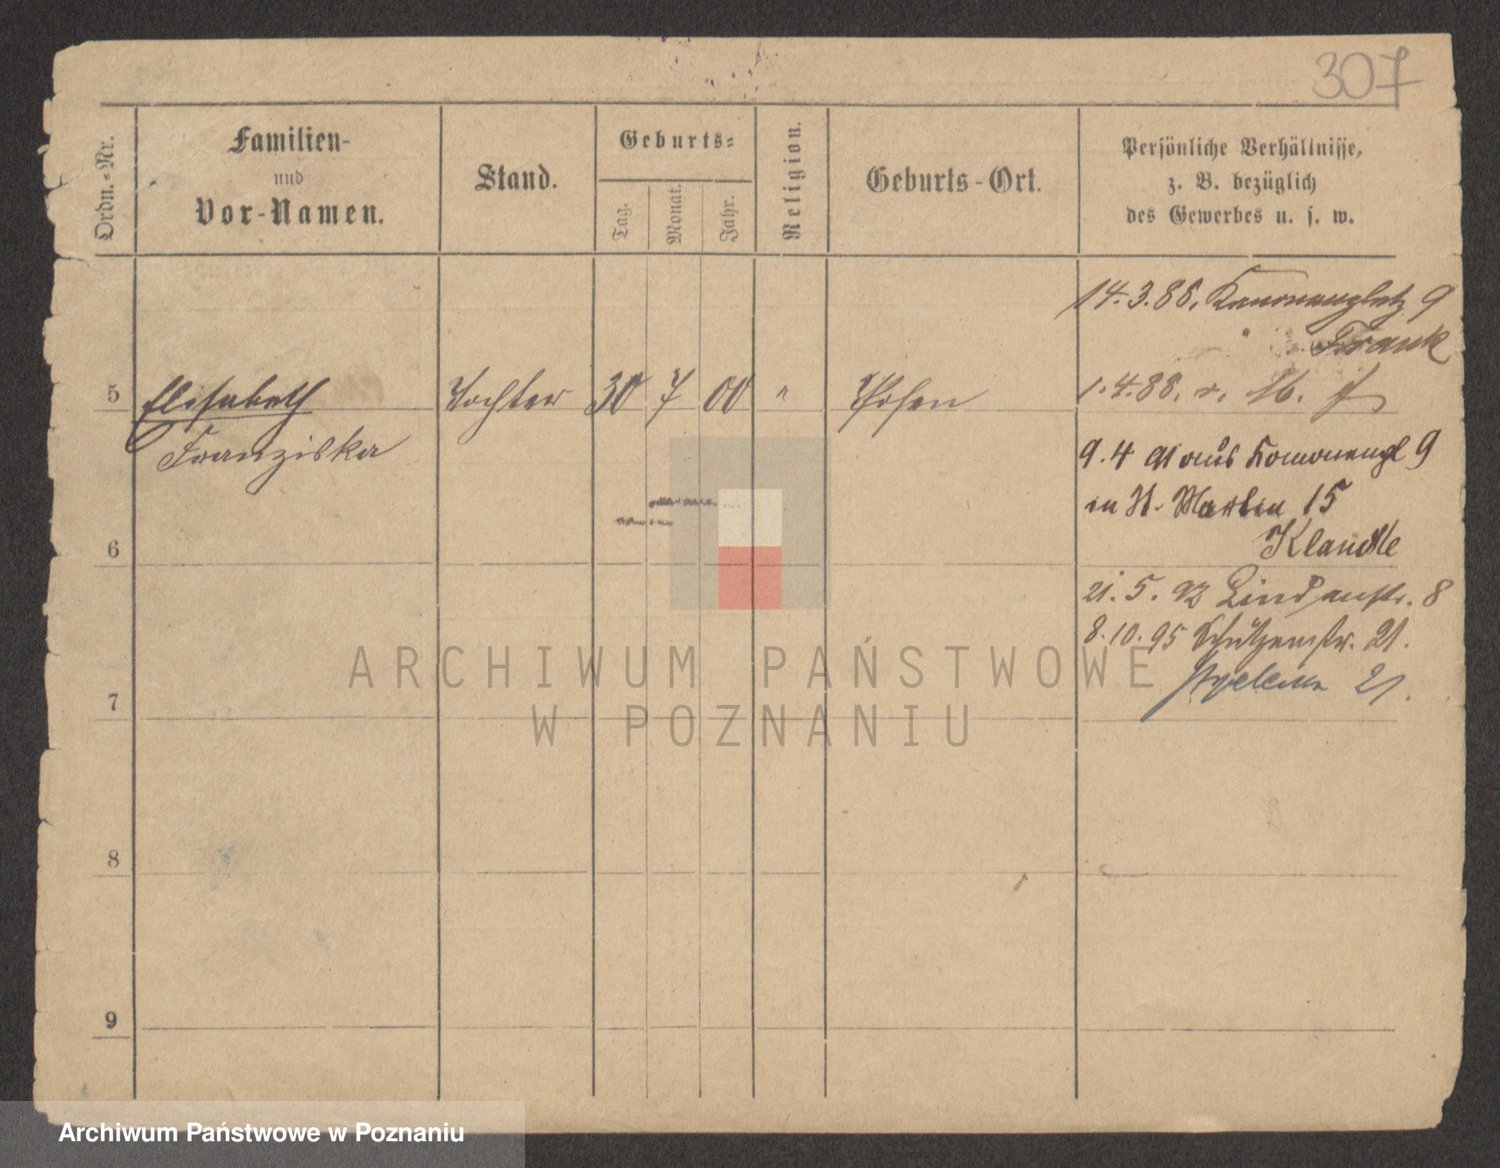 307
Ordn.-Nr.
Familien-
und
Vor-Namen.
Stand.
Geburts-
Tag.
Monat.
Jahr.
Religion.
Geburts-Ort.
Persönliche Verhältnisse,
z. B. bezüglich
des Gewerbes u. s. w.
14.3.88. Kanonenplatz 9
Frank
5 Elisabeth Tochter 30 7 00 " Posen 1.4.88.
Franziska
9.4 91 aus Kanonenpl 9
in St. Martin 15
6
21.5.92 Lindenstr. 8
8.10.95 Schützenstr. 21.
21.
7
8
9
ARCHIWUM PAŃSTWOWE
W POZNANIU
Archiwum Państwowe w Poznaniu